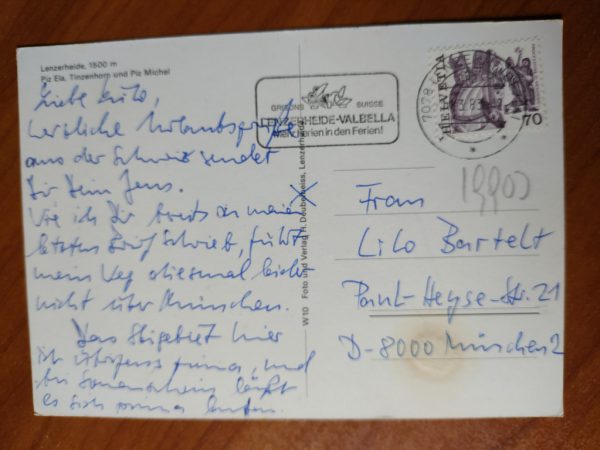 Lenzerheide, 1500 m
Piz Ela, Tinzenhorn und Piz Michel
Liebe Lilo,
herzliche Urlaubsgrüße
aus der Schweiz sendet
Dir Dein Jens.
Wie ich Dir bereits in meinem
letzten Brief schrieb, führt
mein Weg diesmal leider
nicht über München.
Das Skigebiet hier
ist übrigens prima, und
bei Sonnenschein läßt
es sich prima laufen.
W 10 Foto und Verlag H. Deuberbeiss, Lenzerheide
GRISONS SUISSE
LENZERHEIDE-VALBELLA
mehr Ferien in den Ferien!
7078
HELVETIA
70
Frau
Lilo Bartelt
Paul-Heyse-Str. 21
D-8000 München 2